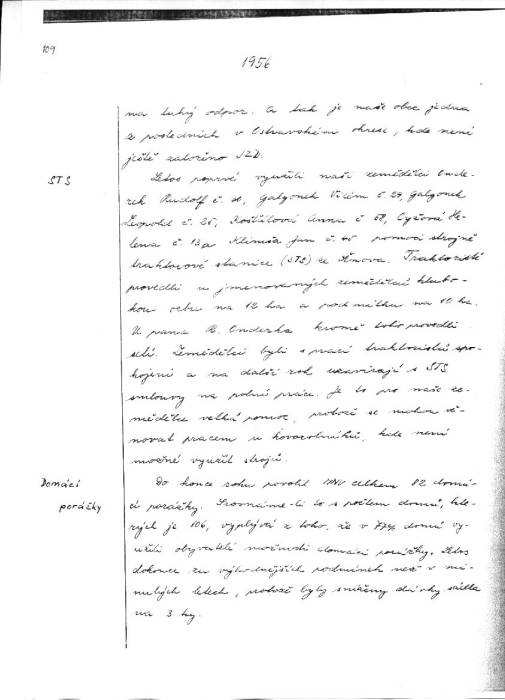 109
1956
na tuhý odpor. A tak je naše obec jedna
z posledních v Ostravském okrese, kde není
ještě založeno JZD.
STS
Letos poprvé využili naši zemědělci Onde-
rek Rudolf č. Galgonek Vilém č 29, Galgonek
Leopold č. 25, Košťálová Anna č 68, Cyžová He-
lena č. 13 a Klimša Jan č. 45 pomoci strojně
traktorové stanice (STS) ze Klimkovic
provedli u jmenovaných zemědělců hlubo-
kou orbu na 12 ha a podmítku na 10 ha.
U pana R. Onderka kromě toho provedli
setí. Zemědělci byli s prací traktoristů spo-
kojeni a na další rok uzavírají s STS
smlouvy na polní práce. Je to pro naše ze-
mědělce velká pomoc, protože se mohou vě-
novat pracem u kovorolníků, kde není
možné využít strojů.
Domácí
porážky
Do konce roku povolil MNV celkem 82 domá-
cí porážky. Srovnáme-li to s počtem domů, kte-
rých je 106, vyplývá z toho, že v 77% domů vy-
užili obyvatelé možnosti domácí porážky. Letos
dokonce za výhodnějších podmínek než v mi-
nulých letech, protože byly sníženy dávky sádla
na 3 kg.